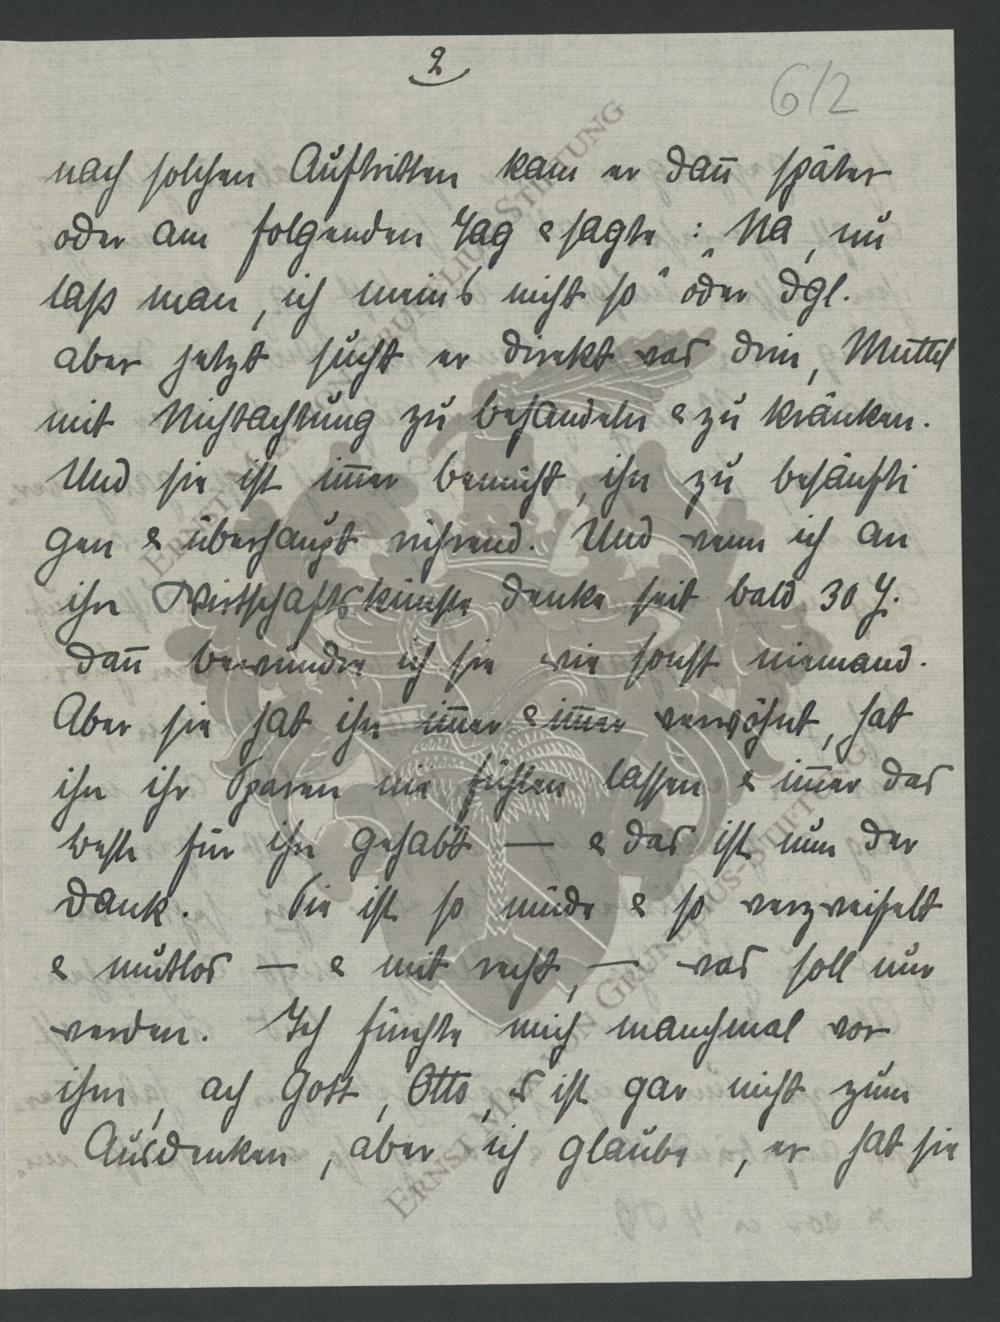 2
6/2
nach solchen Auftritten kam er dann später
oder am folgenden Tag & sagte: „Na, nu
laß man, ich meins nicht so“ oder dgl.
aber jetzt sucht er direkt was drin, Muttel
mit Nichtachtung zu behandeln & zu kränken.
Und sie ist immer bemüht, ihn zu besänfti
gen & überhaupt rührend. Und wenn ich an
ihre Wirtschaftskünste denke seit bald 30 J.
dann bewundre ich sie wie sonst niemand.
Aber sie hat ihn immer & immer verwöhnt, hat
ihn ihr Sparen nie fühlen lassen & immer das
beste für ihn gehabt — & das ist nun der
Dank. Sie ist so müde & so verzweifelt
& mutlos — & mit recht, — was soll nur
werden. Ich fürchte mich manchmal vor
ihm, ach Gott, Otto, es ist gar nicht zum
Ausdenken, aber ich glaube, er hat sie
ERNST MAX VON GRUNELIUS-STIFTUNG
ERNST MAX VON GRUNELIUS-STIFTUNG